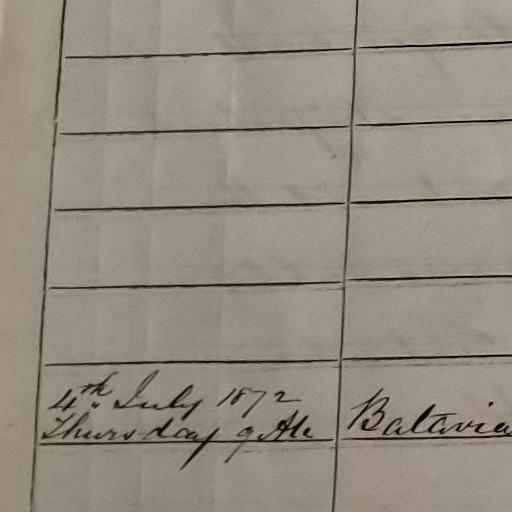 4th July 1872
Thursday 9 Batavia